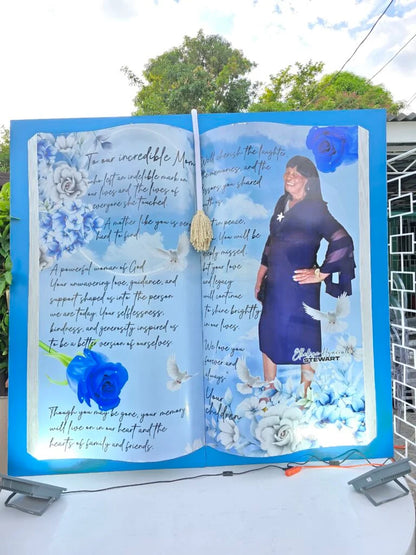 To our incredible Mom
who left an indelible mark on
our lives and the lives of
everyone she touched.
A mother like you is
hard to find.
A powerful woman of God
Your unwavering love, guidance, and
support shaped us into the person
we are today. Your selflessness,
kindness, and generosity inspired us
to be a better version of ourselves.
Though you may be gone, your memory
will live on in our heart and the
hearts of family and friends.
We'll cherish the laughter,
and the
you shared
in peace,
You will be
missed,
but your love
and legacy
will continue
to shine brightly
in our lives.
We love you
forever and
always.
Your
children
STEWART